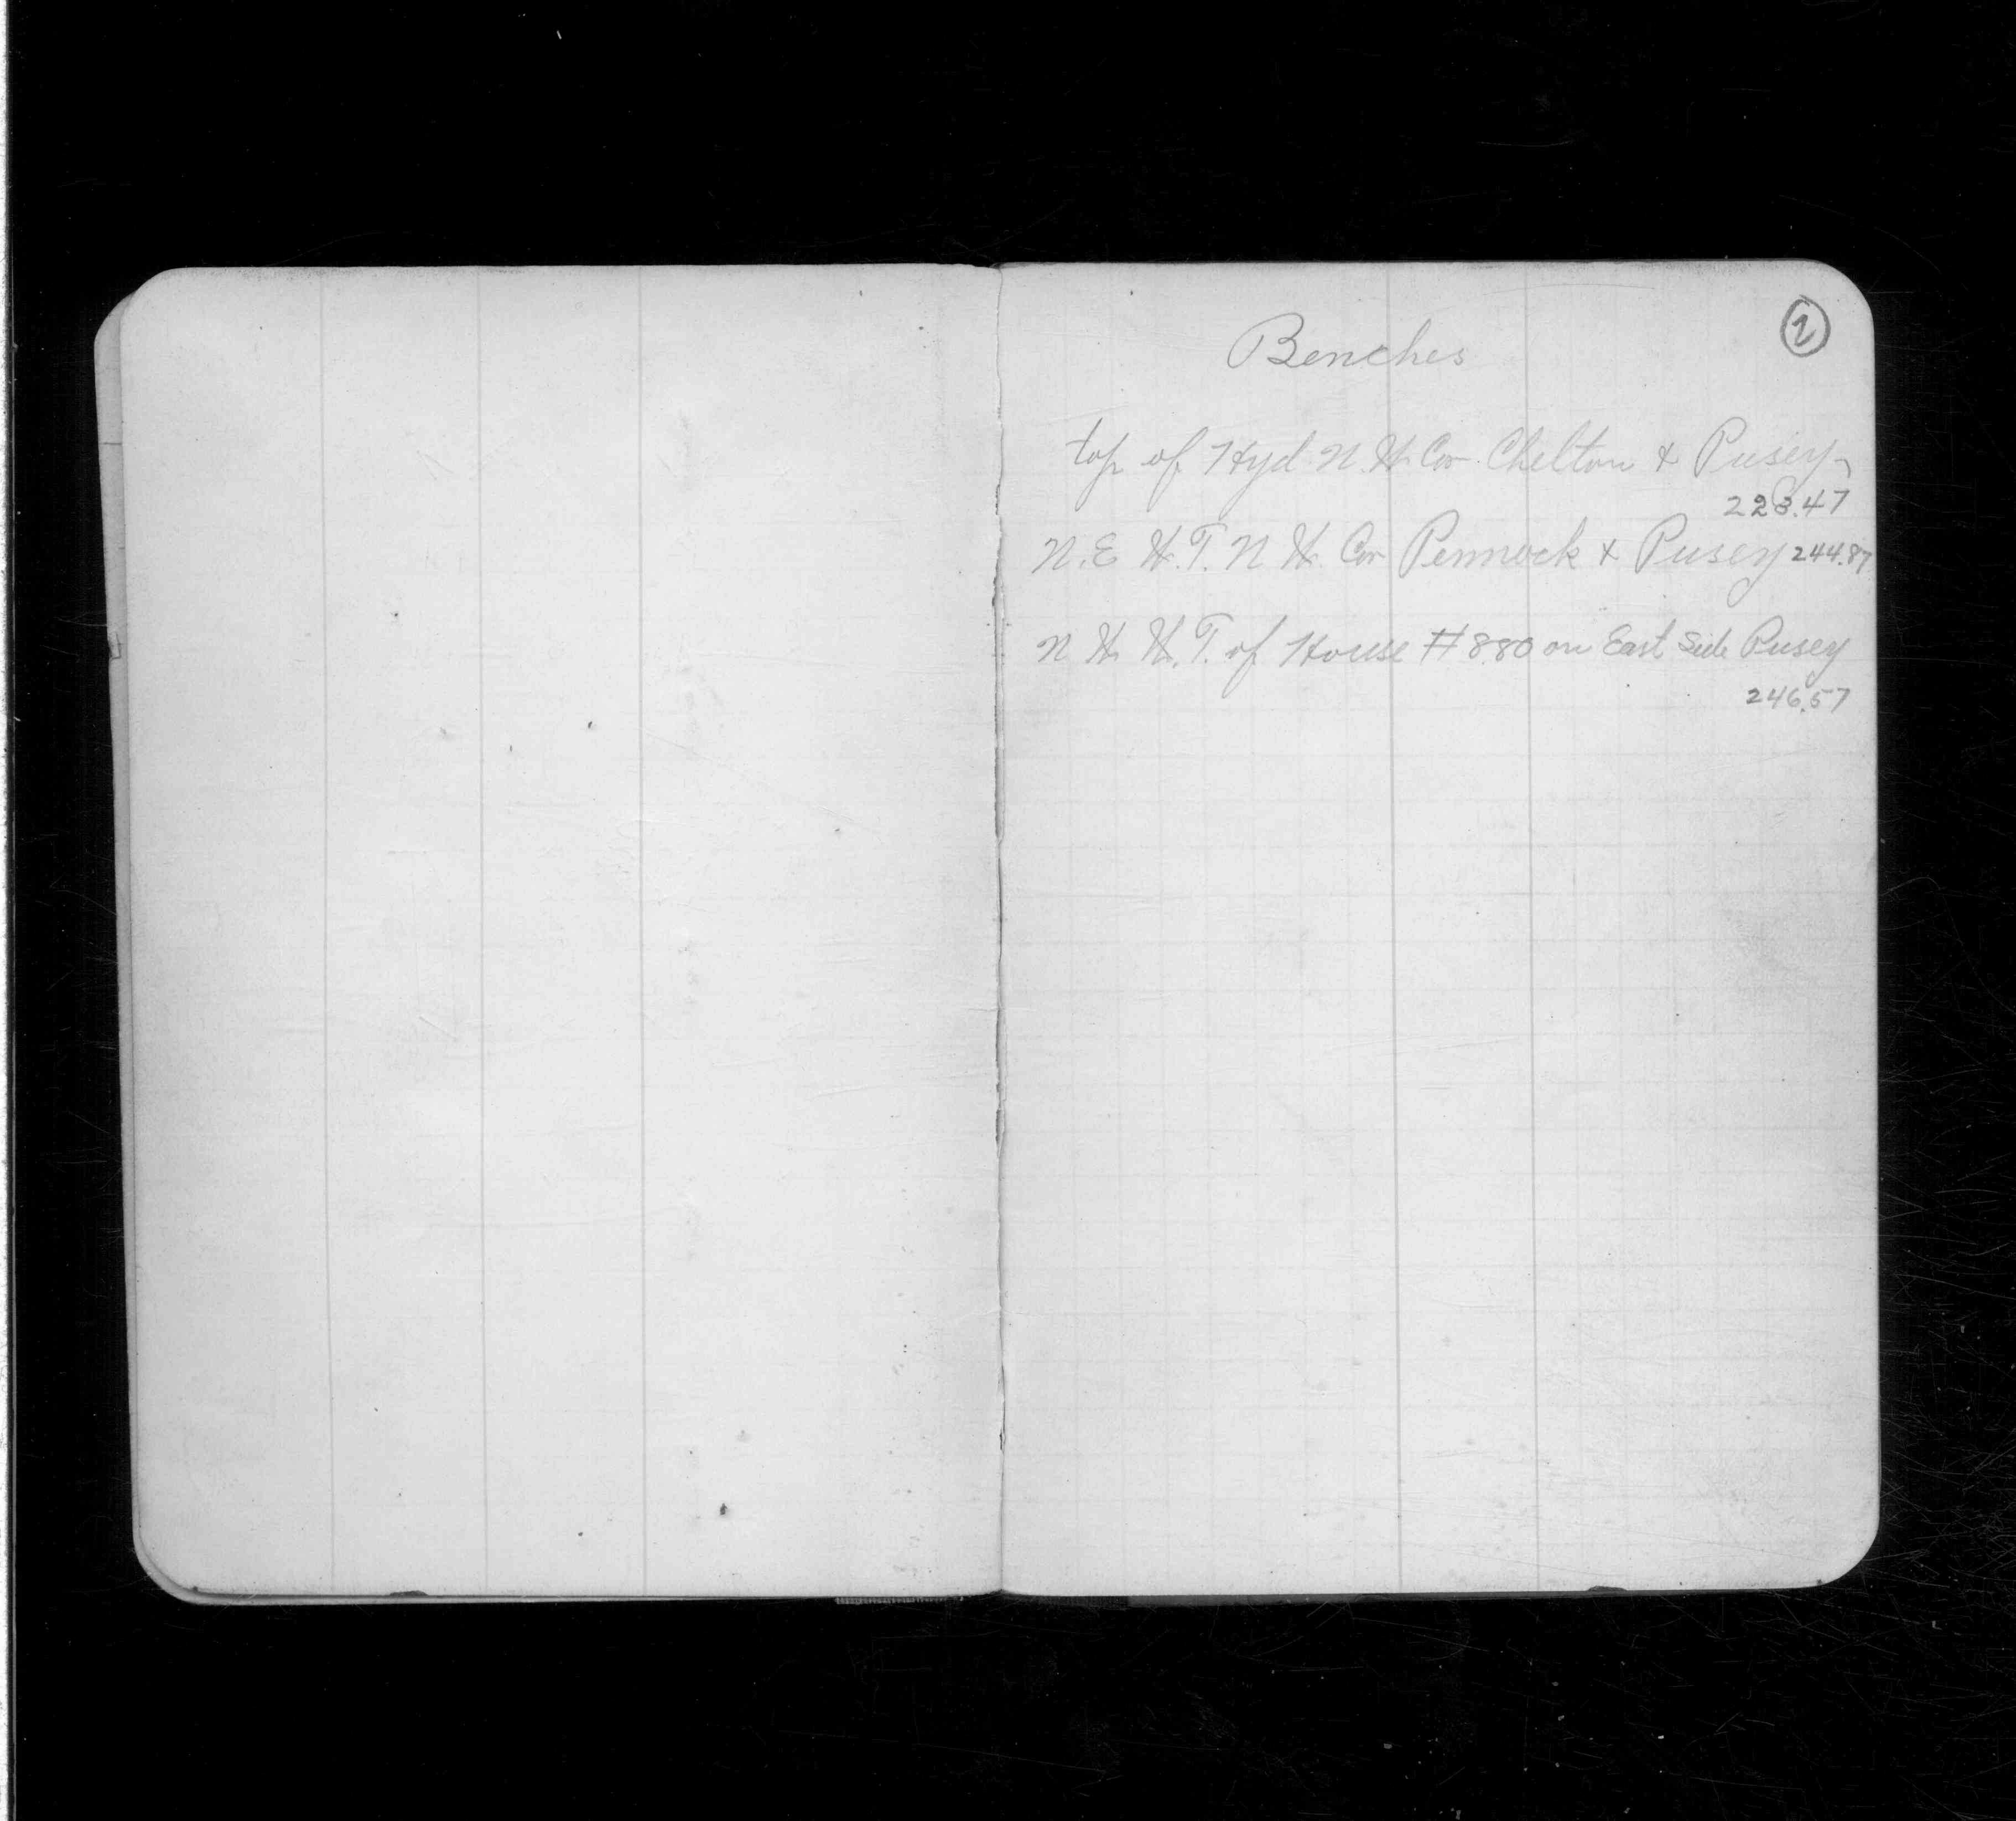 2
Benches
top of Hyd. N.W. Cor. Chelton & Pusey
223.47
N.E W.T. N W. Cor Pennock & Pusey 244.87
N W W.T. of House #880 on East Side Pusey
246.57